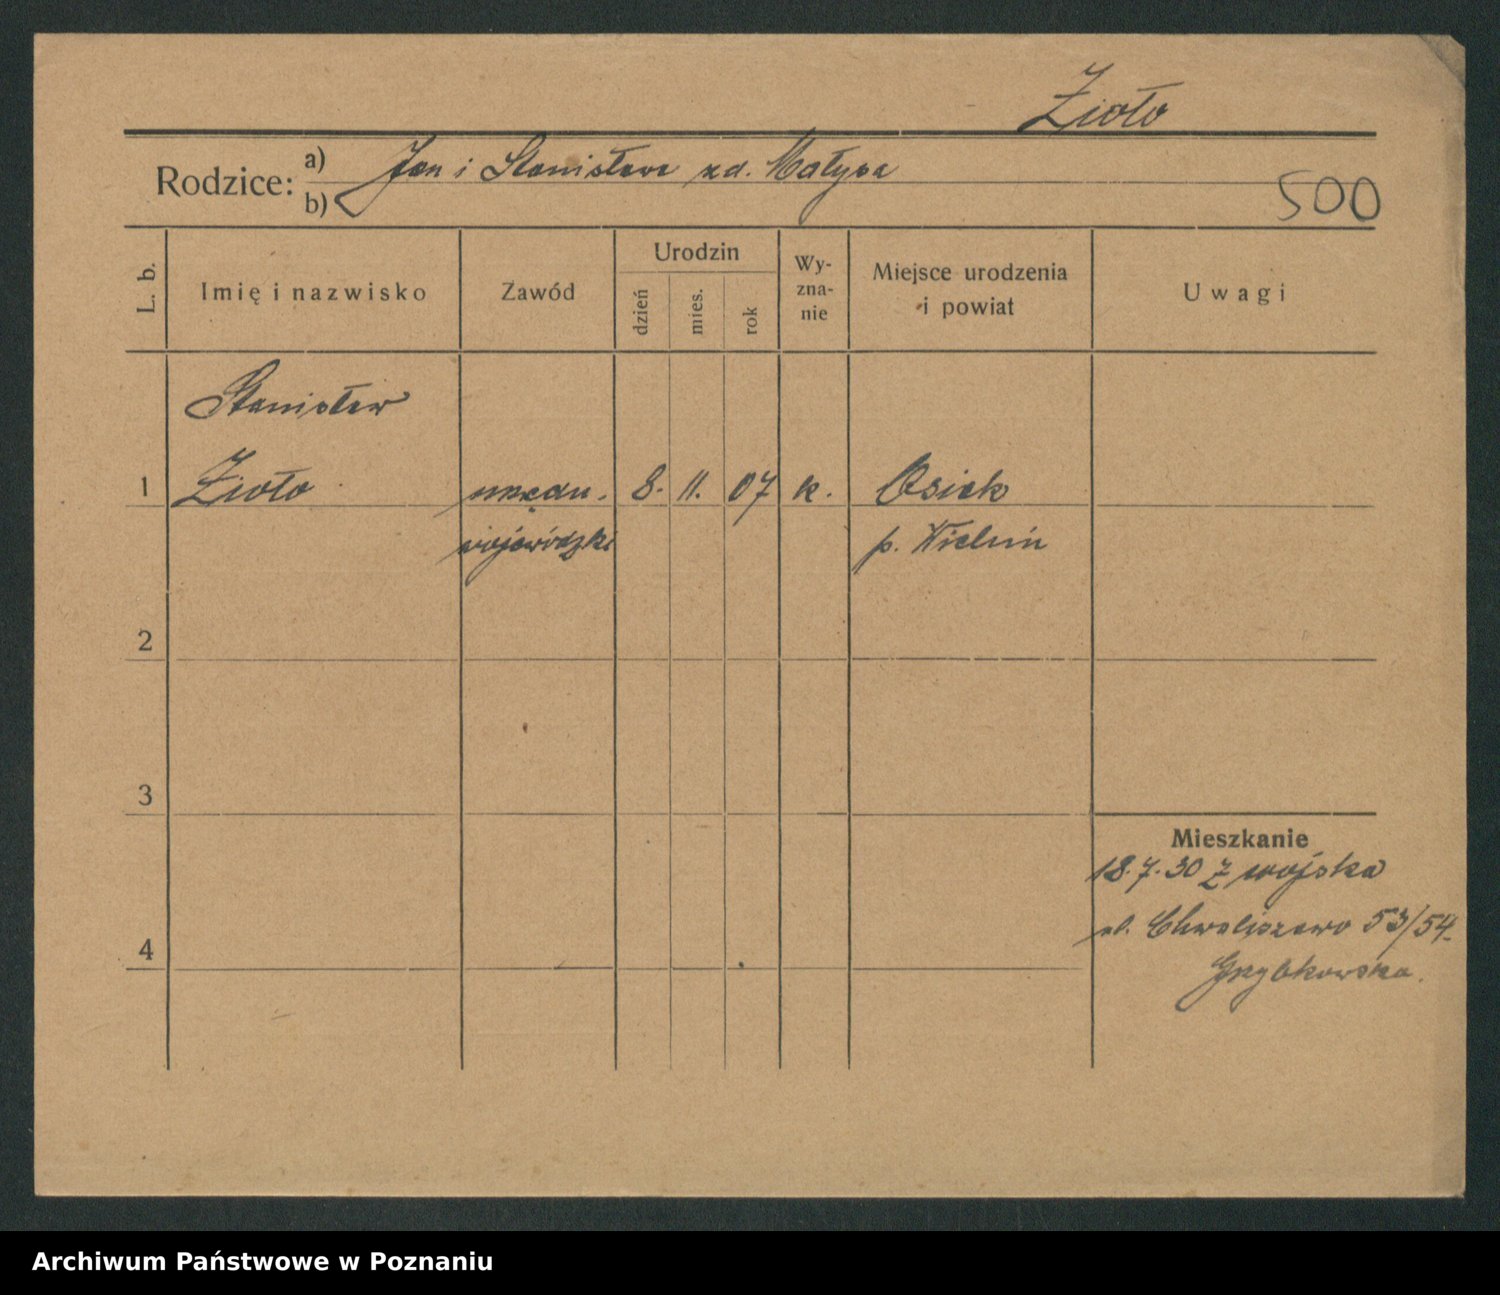 Zioło
Rodzice: a) Jan i Stanisława zd. Małysa
b)
500
L. b.
Imię i nazwisko
Zawód
Urodzin
dzień
mies.
rok
Wy-
zna-
nie
Miejsce urodzenia
i powiat
Uwagi
Stanisław
1 Zioło urzędn. 8. 11. 07 k. Osiek
wojewódzki p. Wieluń
2
3
Mieszkanie
18.7.30 z wojska
ul. Chwaliszewo 53/54
4
Grzybkowska.
Archiwum Państwowe w Poznaniu